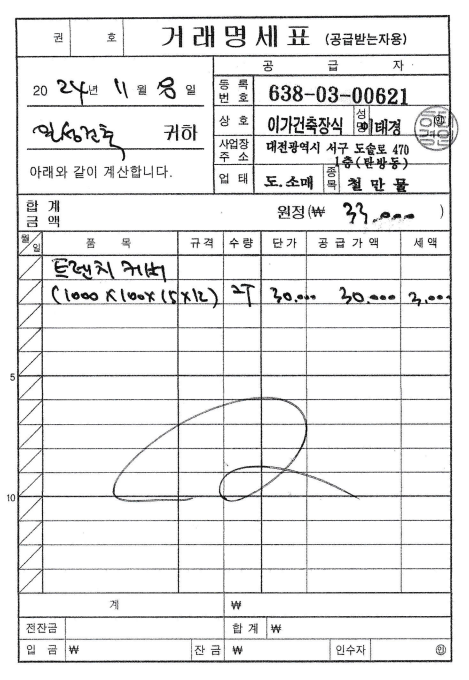 권 호 거래명세표 (공급받는자용)
2024년 11월 8일
공 급 자
등록번호 638-03-00621
귀하
상호 이가건축장식 성명 이태경
사업장주소 대전광역시 서구 도솔로 470
1층(탄방동)
아래와 같이 계산합니다.
업태 도.소매 종목 철만물
합계금액 원정(₩ 33,000 )
월 일 품 목 규격 수량 단가 공급가액 세액
트렌치 커버
(1000 X 100 X 15 X 12) 30,000 30,000 3,000
5
10
계 ₩
전잔금 합계 ₩
입금 ₩ 잔금 ₩ 인수자 ㊞